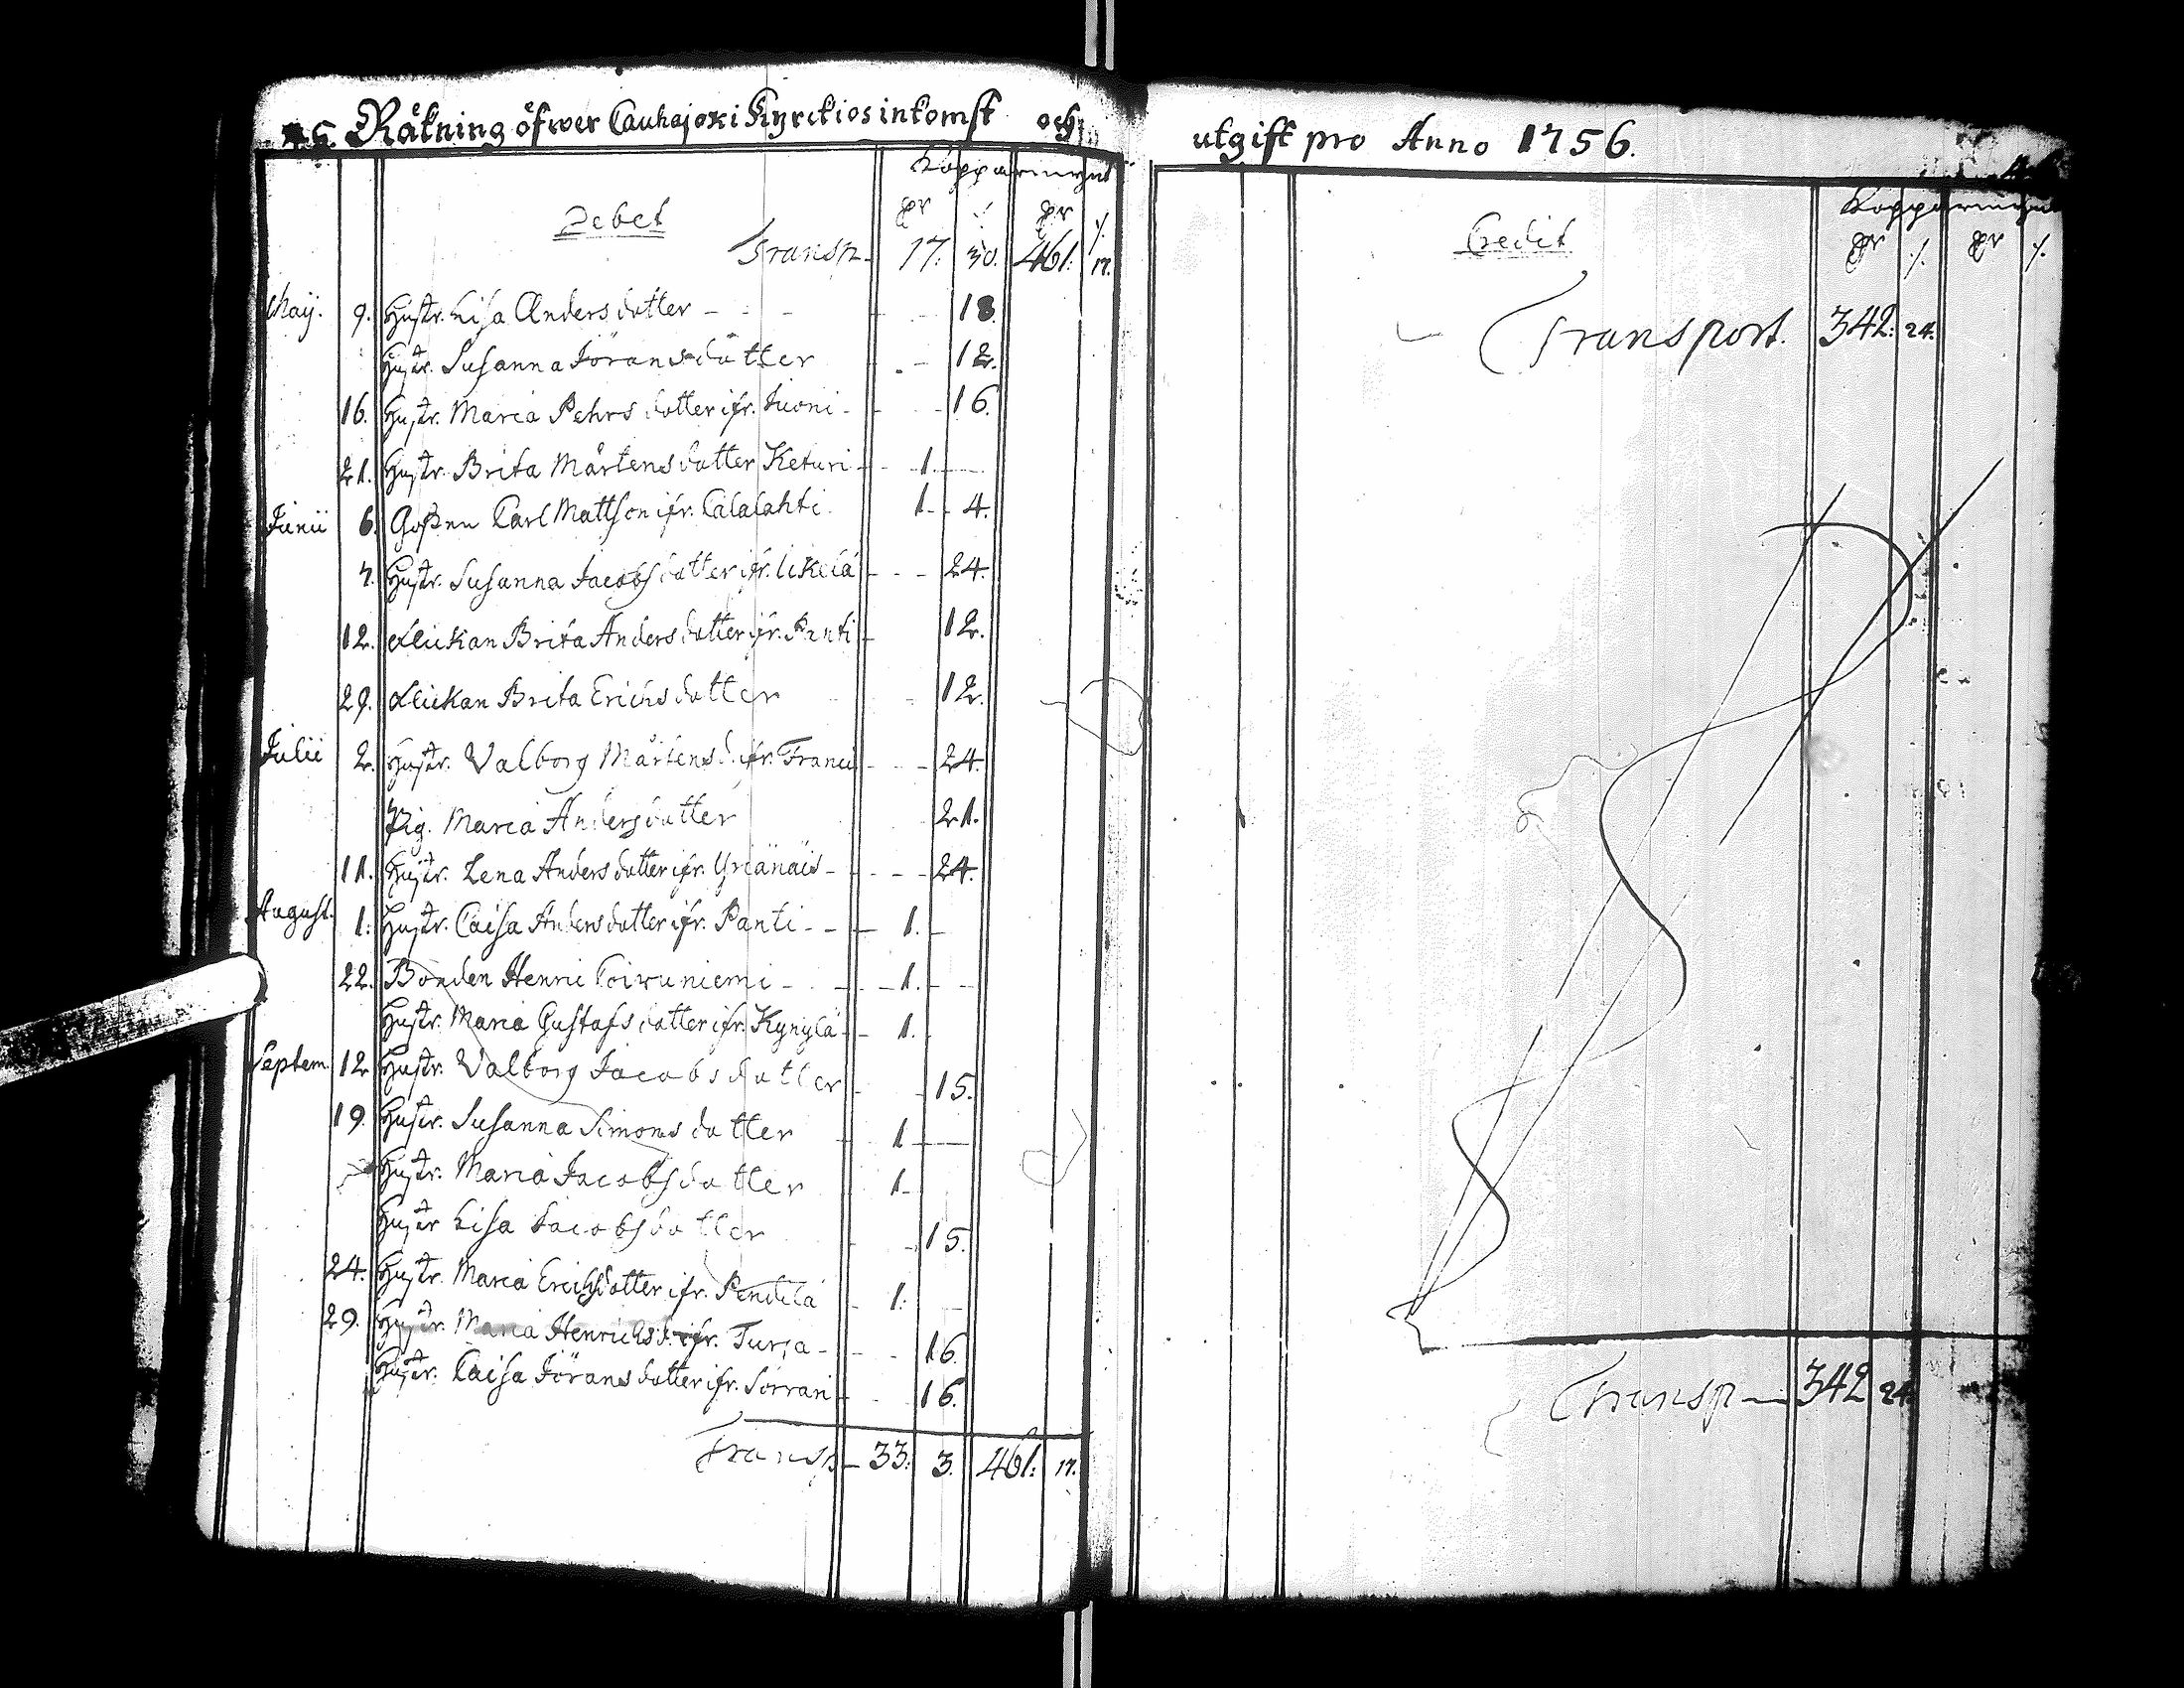 Råkning öfwer Cauhajoki Kyrckios inkomst och
Kopparmynt
Debet
Transp. 17: 30. 461: 17.
Maij. 9. Hustr. Lisa Andersdotter - - - 18.
Hustr. Susanna Jöransdotter - 12.
16. Hustr. Maria Pehrsdotter ifr. Luoni - 16.
21. Hustr. Brita Mårtensdotter Keturi - 1.
Junii 6. Goßen Carl Mattson ifr. Calalahti. 1. 4.
7. Hustr. Susanna Jacobsdotter ifr. Ickelä - 24.
12. Flickan Brita Andersdotter ifr. Panti - 12.
29. Flickan Brita Erichsdotter 12.
Julii 2. Hustr. Valborg Mårtensd. ifr. Franci - 24.
Pig. Maria Andersdotter 21.
11. Hustr. Lena Andersdotter ifr. Yriänäis - 24.
August. 1. Hustr. Caisa Andersdotter ifr. Panti - 1.
22. Bonden Henric Coiwuniemi - 1.
Hustr. Maria Gustafsdotter ifr. Kynylä - 1.
Septem. 12 Hustr. Valborg Jacobsdotter 15.
19. Hustr. Susanna Simonsdotter 1
Hustr. Maria Jacobsdotter 1.
Hustr Lisa Jacobsdotter 15.
24. Hustr. Maria Erichsdotter ifr. Pentilä 1.
29. Hustr. Maria Henrichsd. ifr. Turja - 16.
Hustr. Caisa Jöransdotter ifr. Sorrari - 16.
Transp - 33: 3. 461: 17.
utgift pro Anno 1756.
Kopparmynt
Credit
Transport. 342: 24.
Transp - 342 24